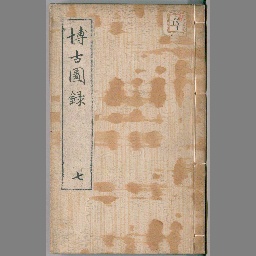 博古圖録
七